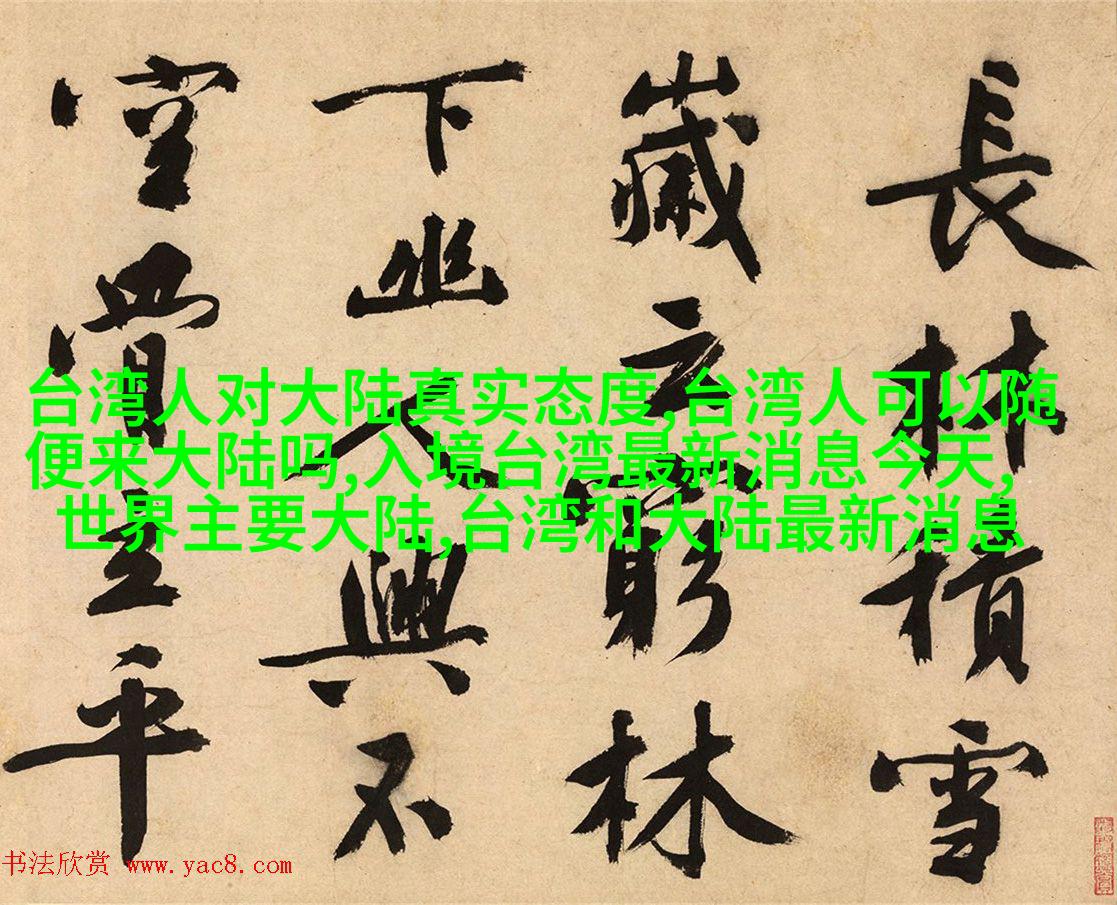 長林積雪
歲云窮林
下幽人興不
空平
台湾人对大陆真实态度,台湾人可以随
便来大陆吗,入境台湾最新消息今天,
世界主要大陆,台湾和大陆最新消息
书法欣赏 www.yac8.com